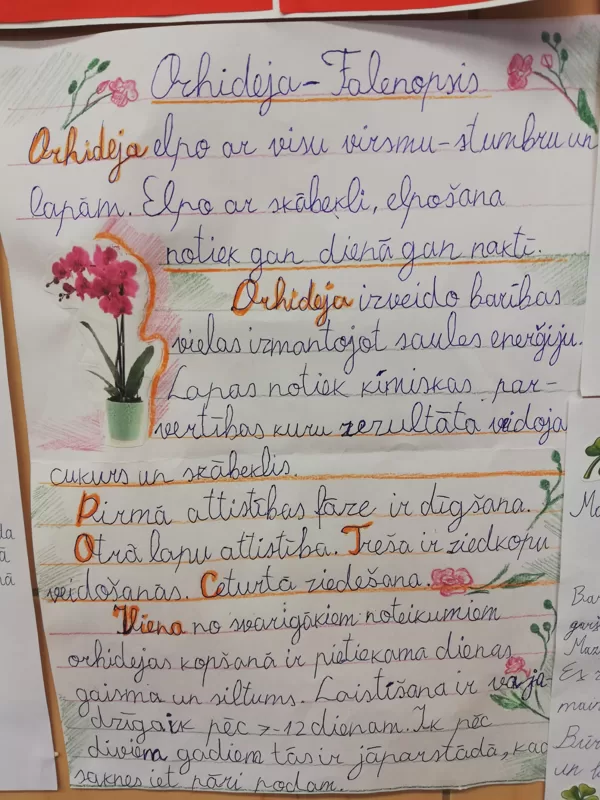 Orhideja - Falenopsis
Orhideja elpo ar visu virsmu - stumbru un
lapām. Elpo ar skābekli, elpošana
notiek gan dienā gan naktī.
Orhideja izveido barības
vielas izmantojot saules enerģiju.
Lapas notiek ķīmiskas pār-
vertības kuru rezultāta veidoja
cukurs un skābeklis.
Pirmā attistības fāze ir dīgšana.
Otrā lapu attistība. Treša ir ziedkopu
veidošanas. Ceturtā ziedešana.
Viena no svarigākiem noteikumiem
orhidejas kopšanā ir pietiekama dienas
gaisma un siltums. Laistīšana ir vaja-
dzīga ik pēc 7-12 dienam. Ik pēc
diviem gadiem tās ir jāparstādā, kad
saknes iet pāri podam.
da
ā
nā
Ma
Bar
garš
Maa
Ex
main
Būr
un